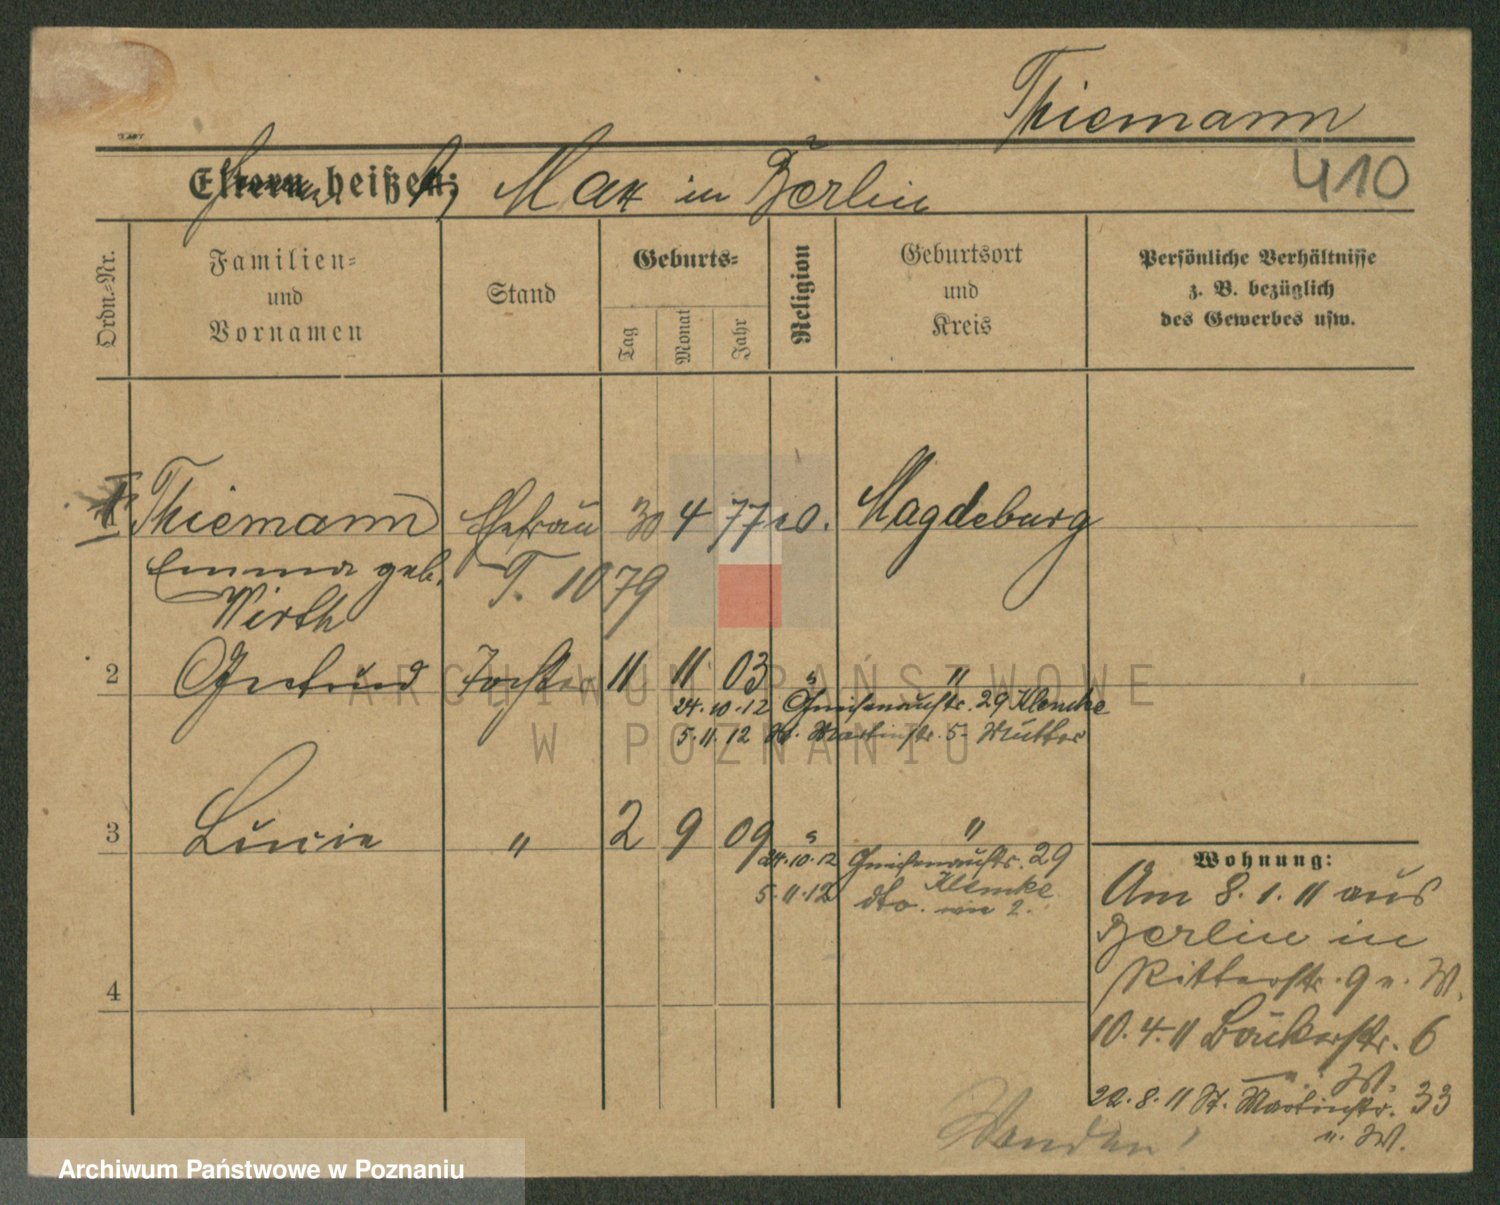 Thiemann
410
Eltern heißen: Max in Berlin
Ordn.-Nr.
Familien-
und
Vornamen
Stand
Geburts-
Tag
Monat
Jahr
Religion
Geburtsort
und
Kreis
Persönliche Verhältnisse
z. B. bezüglich
des Gewerbes usw.
Thiemann Ehefrau 30 4 77 Magdeburg
Emma geb. T. 1079
Wirth
2 Gertrud Tochter 11 11 03 " "
24.10.12 Gneisenaustr. 29 Klemcke
5.11.12 St. Martinstr. 5 - Mutter
3 Lucie " 2 9 09 " "
24.10.12 Gneisenaustr. 29
Klemcke
5.11.12 dto. wie 2.
4
Wohnung:
Am 8.1.11 aus
Berlin in
Ritterstr. 9 u. W.
10.4.11 Bäckerstr. 6
u. W.
22.8.11 St. Martinstr. 33
u. W.
Wenden!
ARCHIWUM PAŃSTWOWE
W POZNANIU
Archiwum Państwowe w Poznaniu